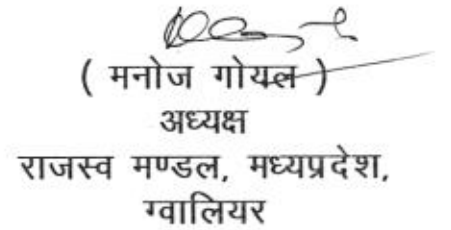 ( मनोज गोयल )
अध्यक्ष
राजस्व मण्डल, मध्यप्रदेश,
ग्वालियर